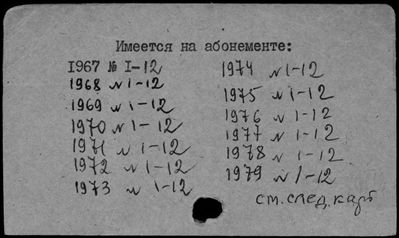 Имеется на абонементе:
1967 № I-12
1968 № 1-12
1969 № 1-12
1970 № 1-12
1971 № 1-12
1972 № 1-12
1973 № 1-12
1974 № 1-12
1975 № 1-12
1976 № 1-12
1977 № 1-12
1978 № 1-12
1979 № 1-12
см. след. карт